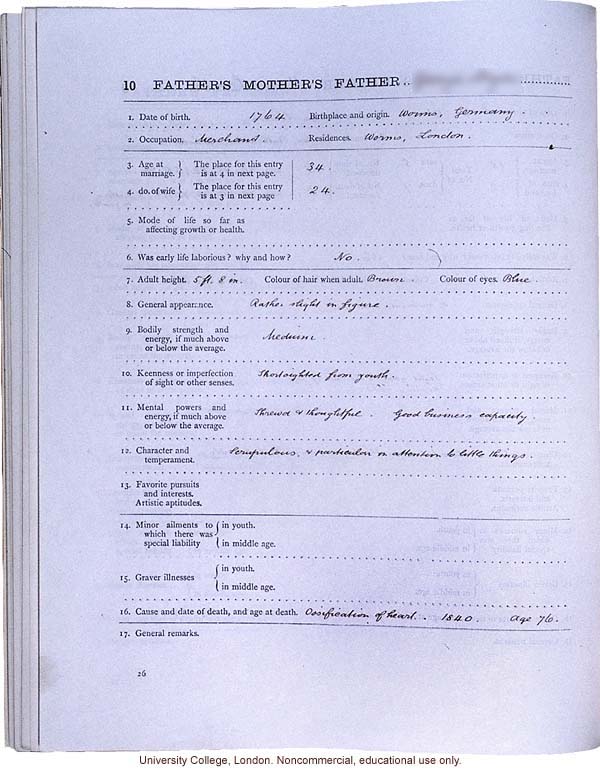 10 FATHER'S MOTHER'S FATHER..
1. Date of birth. 1764 Birthplace and origin. Worms, Germany.
2. Occupation. Merchant Residences. Worms, London.
3. Age at marriage. } The place for this entry is at 4 in next page. 34.
4. do. of wife } The place for this entry is at 3 in next page 24.
5. Mode of life so far as
affecting growth or health.
6. Was early life laborious? why and how? No.
7. Adult height. 5 ft. 8 in. Colour of hair when adult. Brown. Colour of eyes. Blue.
8. General appearance. Rather slight in figure.
9. Bodily strength and
energy, if much above
or below the average.
Medium.
10. Keenness or imperfection
of sight or other senses.
Shortsighted from youth.
11. Mental powers and
energy, if much above
or below the average.
Shrewd & thoughtful. Good business capacity.
12. Character and
temperament.
Scrupulous, & particular in attention to little things.
13. Favorite pursuits
and interests.
Artistic aptitudes.
14. Minor ailments to
which there was
special liability
{ in youth.
in middle age.
15. Graver illnesses
{ in youth.
in middle age.
16. Cause and date of death, and age at death. Ossification of heart. 1840. Age 76.
17. General remarks.
26
University College, London. Noncommercial, educational use only.